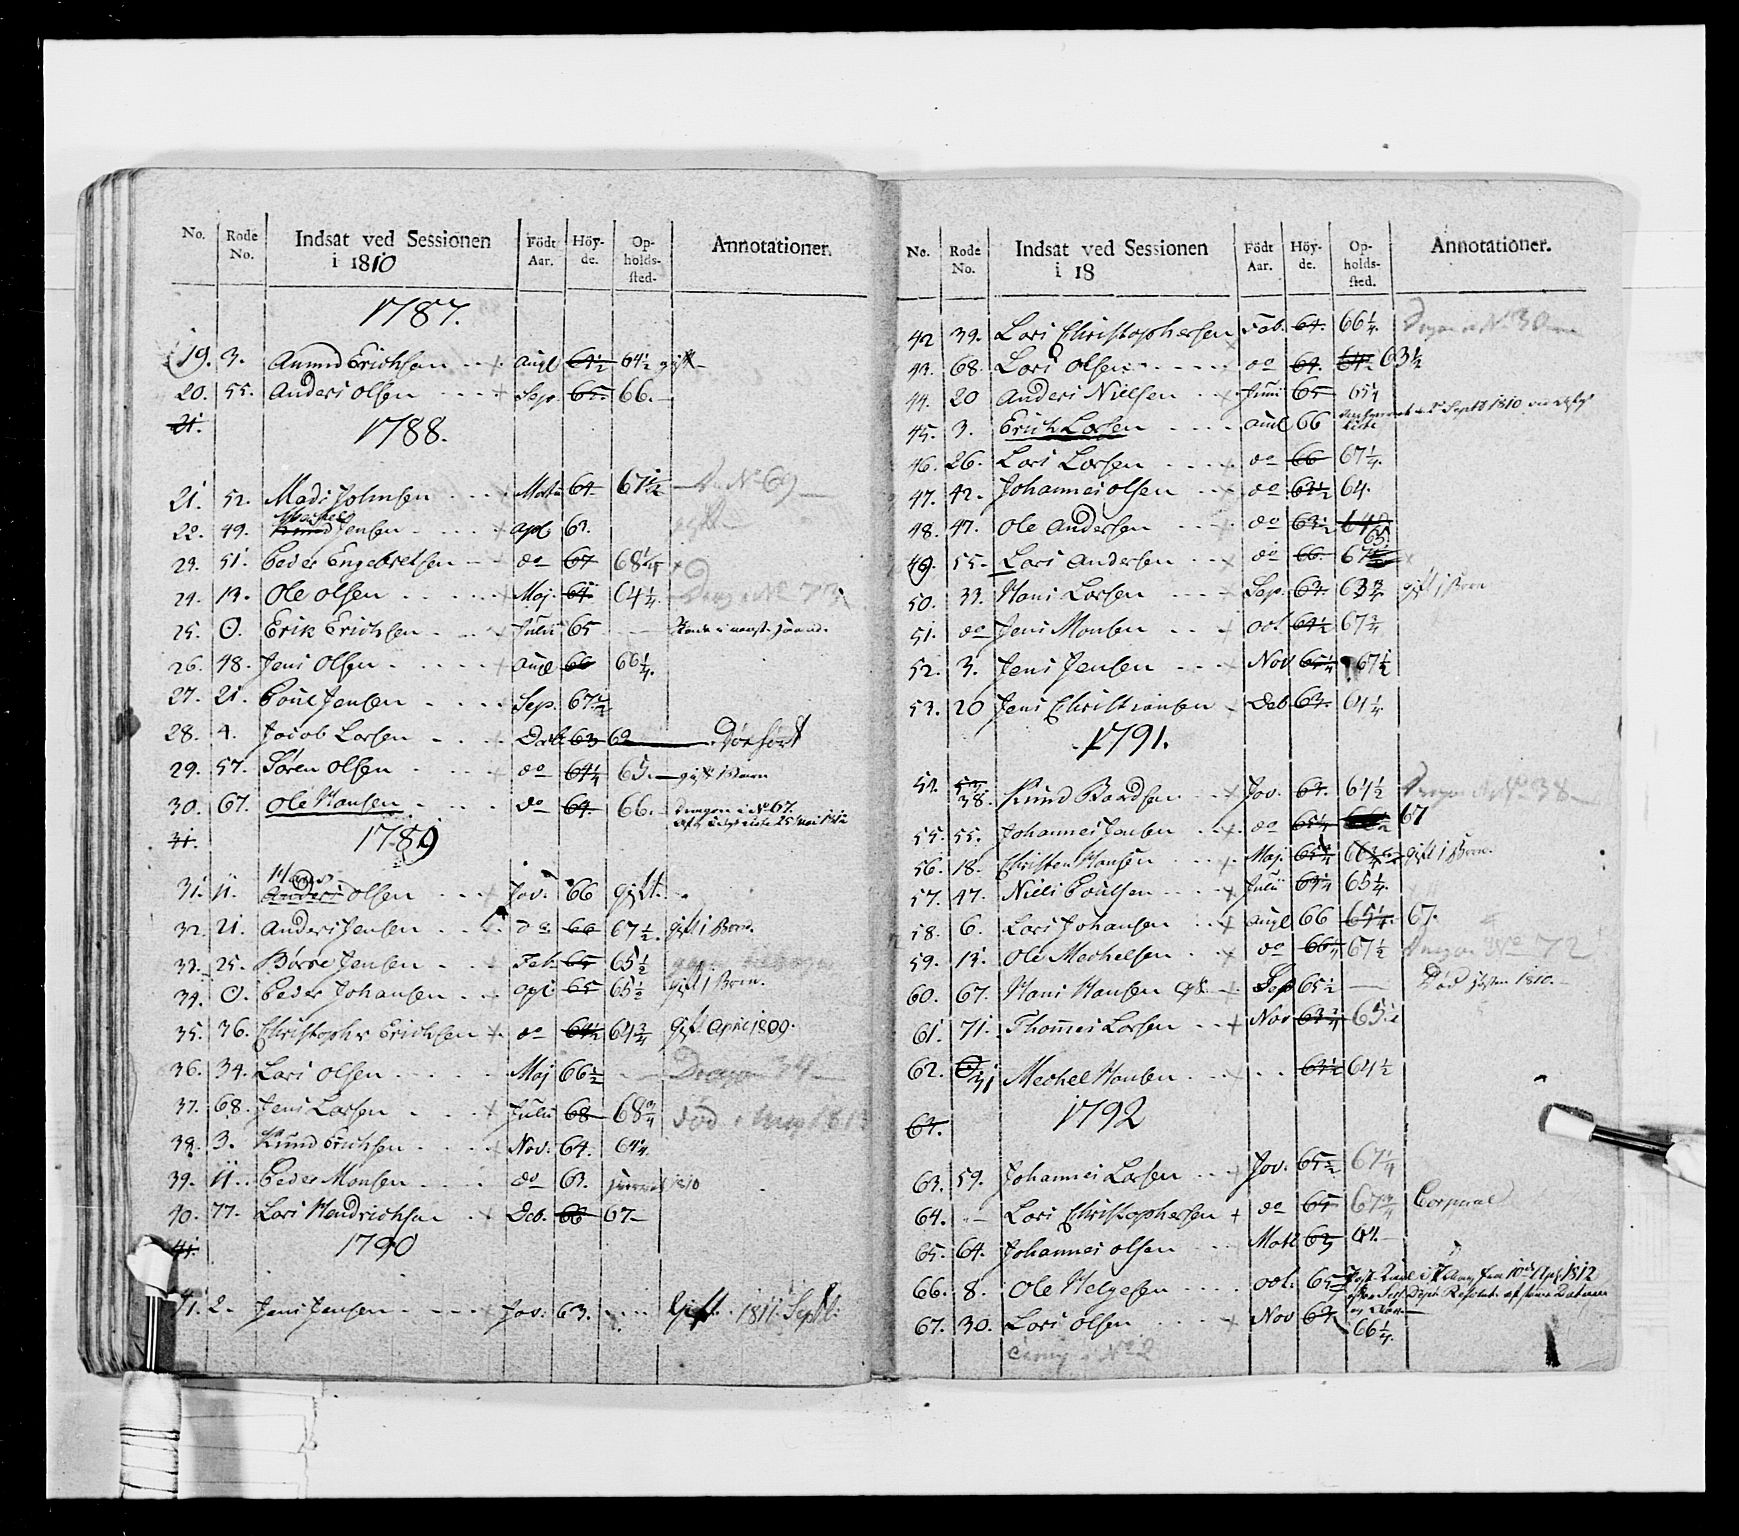 No. Rode No. Indsat ved Sessionen i 1810 Födt Aar. Höyde. Opholdssted. Annotationer.
1787.
19. 3. Amund Erichsen augl 64½ 64½ gift
20. 55. Anders Olsen Sep. 65 66.
21.
1788.
21. 52. Mads Johnsen Martii 64 67½ No 69
22. 49. Knud Jensen apl 63. gift
23. 51. Peder Engebretsen do 67 68¼
24. 13. Ole Olsen Maj. 64 64¼ Drag: No 73
25. 0. Erik Erichsen Julii 65
26. 48. Jens Olsen augl 66 66¼
27. 21. Poul Jensen Sep. 67½
28. 4. Jacob Larsen Decb 63 62
29. 57. Sören Olsen do 64¼ 65. gift 1 Barn
30. 67. Ole Hansen do 64. 66. Dragon i No 67. 25 Mai 1812
31.
1789
31. 11. Hans Anders Olsen Jav. 66 gift.
32. 21. Anders Jensen do 66 67½. gift 1 Barn.
33. 25. Börre Jensen Feb. 65 65½
34. 0. Peder Johansen apl 65 65½ gift 1 Barn.
35. 36. Christopher Erichsen do 64½ 64¾ Gift April 1809.
36. 34. Lars Olsen Maj 66½ Dragon 34
37. 68. Jens Larsen Julii 68 68¾ död i 1813
38. 3. Knud Erichsen Nov. 64. 64¼
39. 11. Peder Monsen do 63. 1810
40. 77. Lars Hendrichsen Deb. 66 67
41.
1790
41. 2. Jens Jensen Jav. 63. Gift. 1811. Septb.
No. Rode No. Indsat ved Sessionen i 18 Födt Aar. Höyde. Opholdssted. Annotationer.
42 39. Lars Christophersen Feb. 64. 66¼ Dragon No 30
43. 68. Lars Olsen do 64. 64½ 63½
44. 20 Anders Nielsen Junii 65 65¼
45. 3. Erich Larsen augl 66 Septb 1810
46. 26. Lars Larsen do 66 67¼.
47. 42. Johannes Olsen do 63½ 64.
48. 47. Ole Andersen do 63½ 64 65.
49. 55. Lars Andersen do 66. 67
50. 33. Hans Larsen Sep. 63. 63¾ gift 1 Barn
51. do Jens Monsen oct 64½ 67¾
52. 3. Jens Jensen Nov 65¼ 67½
53. 20 Jens Christiansen Deb 63. 64¼
1791.
54. 38. Knud Baardsen Jav. 63. 64½ Dragon No 38
55. 55. Johannes Jensen do 65¼ 67
56. 18. Christen Hansen Maj. 65¼ gift 1 Barn.
57. 47. Niels Poulsen Julii 64¼ 65¼
58. 6. Lars Johansen augl 66 65¼ 67.
59. 13. Ole Mechelsen do 66 67½ Dragon No 72
60. 67. Hans Hansen Sep 65½ Död 1810.
61. 71. Thomes Larsen Nov 63¾ 65½
62. 31 Mechel Hansen 63½ 64½
63.
1792
63. 59. Johannes Larsen Jav. 65½ 67¼
64. Lars Christophersen do 65 67¾ Corporal
65. 64. Johannes Olsen Matl 63 64.
66. 8. Ole Helgesen oct. 65
67. 30. Lars Olsen Nov 64 66¼
No 2